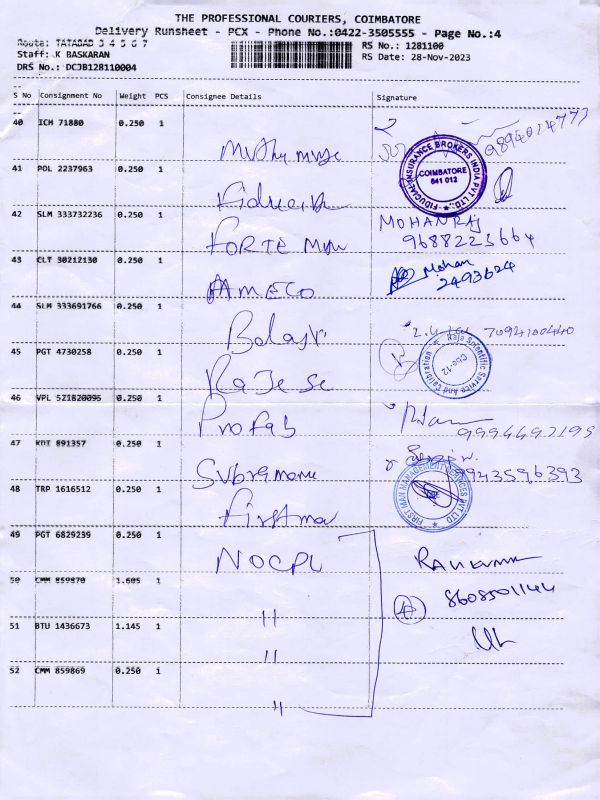 THE PROFESSIONAL COURIERS, COIMBATORE
Delivery Runsheet - PCX - Phone No.:0422-3505555 - Page No.:4
Route: TATABAD 3 4 5 6 7
RS No.: 1281100
Staff: K BASKARAN
RS Date: 28-Nov-2023
DRS No.: DCJB128110004
S No Consignment No Weight PCS Consignee Details Signature
40 ICH 71880 0.250 1
9894014777
FIDUCIAL INSURANCE BROKERS INDIA PVT LTD.
COIMBATORE
641 012
41 POL 2237963 0.250 1
42 SLM 333732236 0.250 1 MOHANRAJ
FORTE 9688223664
43 CLT 30212130 0.250 1 Mohan
AMECO 2493624
44 SLM 333691766 0.250 1
Balaji 7094100440
45 PGT 4730258 0.250 1
Raja Scientific Service And Calibration
Cbe-12
Raje se
46 VPL 521820095 0.250 1
Profab 9994692195
47 KDI 891357 0.250 1
9943596393
48 TRP 1616512 0.250 1
FIRST MAN MANAGEMENT SERVICES PVT LTD
Firstma
49 PGT 6829239 0.250 1
NOCPL RAVIKUMAR
50 CMM 859870 1.605 1
8608501144
"
51 BTU 1436673 1.145 1
"
52 CMM 859869 0.250 1
"